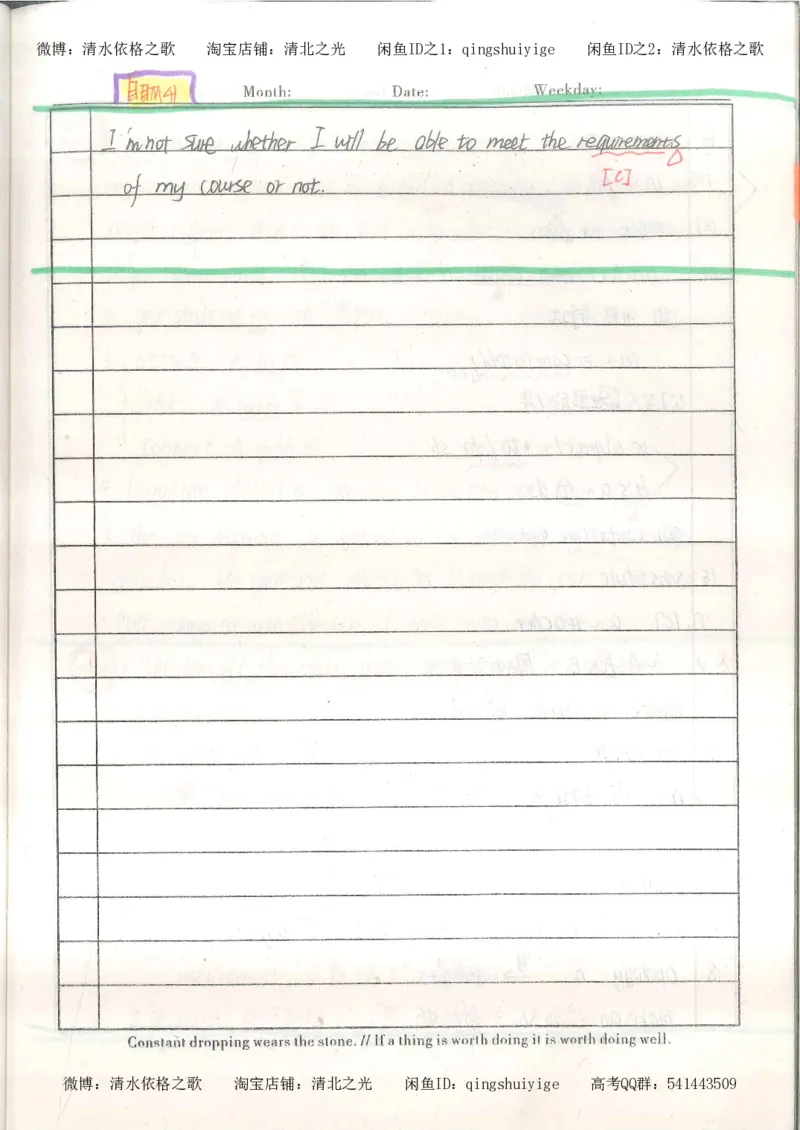 微博：清水依格之歌 淘宝店铺：清北之光 闲鱼ID之1：qingshuiyige 闲鱼ID之2：清水依格之歌
Month: Date: Weekday:
I'm not sure whether I will be able to meet the requirements
[C]
of my course or not.
Constant dropping wears the stone. // If a thing is worth doing it is worth doing well.
微博：清水依格之歌 淘宝店铺：清北之光 闲鱼ID：qingshuiyige 高考QQ群：541443509